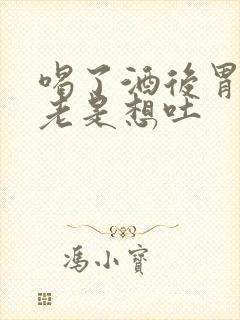 喝了酒後胃
老是想吐
馮小寶